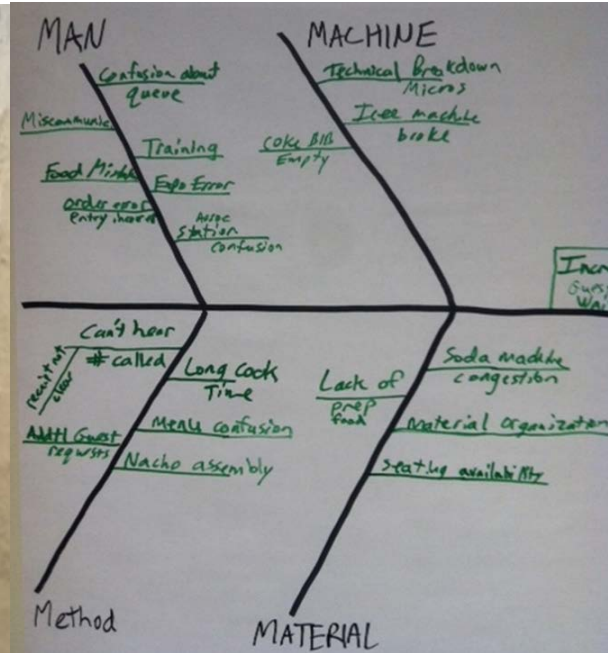 MAN
Confusion about
queue
Miscommunic
Training
Food
Expo Error
order error
entry
Assoc
Station
Confusion
MACHINE
Technical Breakdown
Micros
Icee machine
broke
Coke BIB
Empty
Incr
Gues
Wai
Can't hear
# called
not
clear
Long Cook
Time
Addtl Guest
requests
Menu confusion
Nacho assembly
Method
Soda machine
congestion
Lack of
prep
food
Material organization
Seating availability
MATERIAL